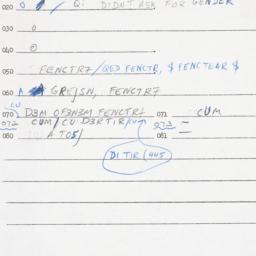 020 O Q: DIDN'T ASK FOR GENDER
030 O
040 O
050 FENCTR7/QED FENCTR, $ FENCTEAR $
060 A GREJSN, FENCTR7
CU
070 D3M OF3N3M FENCTR7 071 CUM
072 CUM/CU D3RTIR/CUM 073 =
080 A TOS/ 081 —
DITIR(445